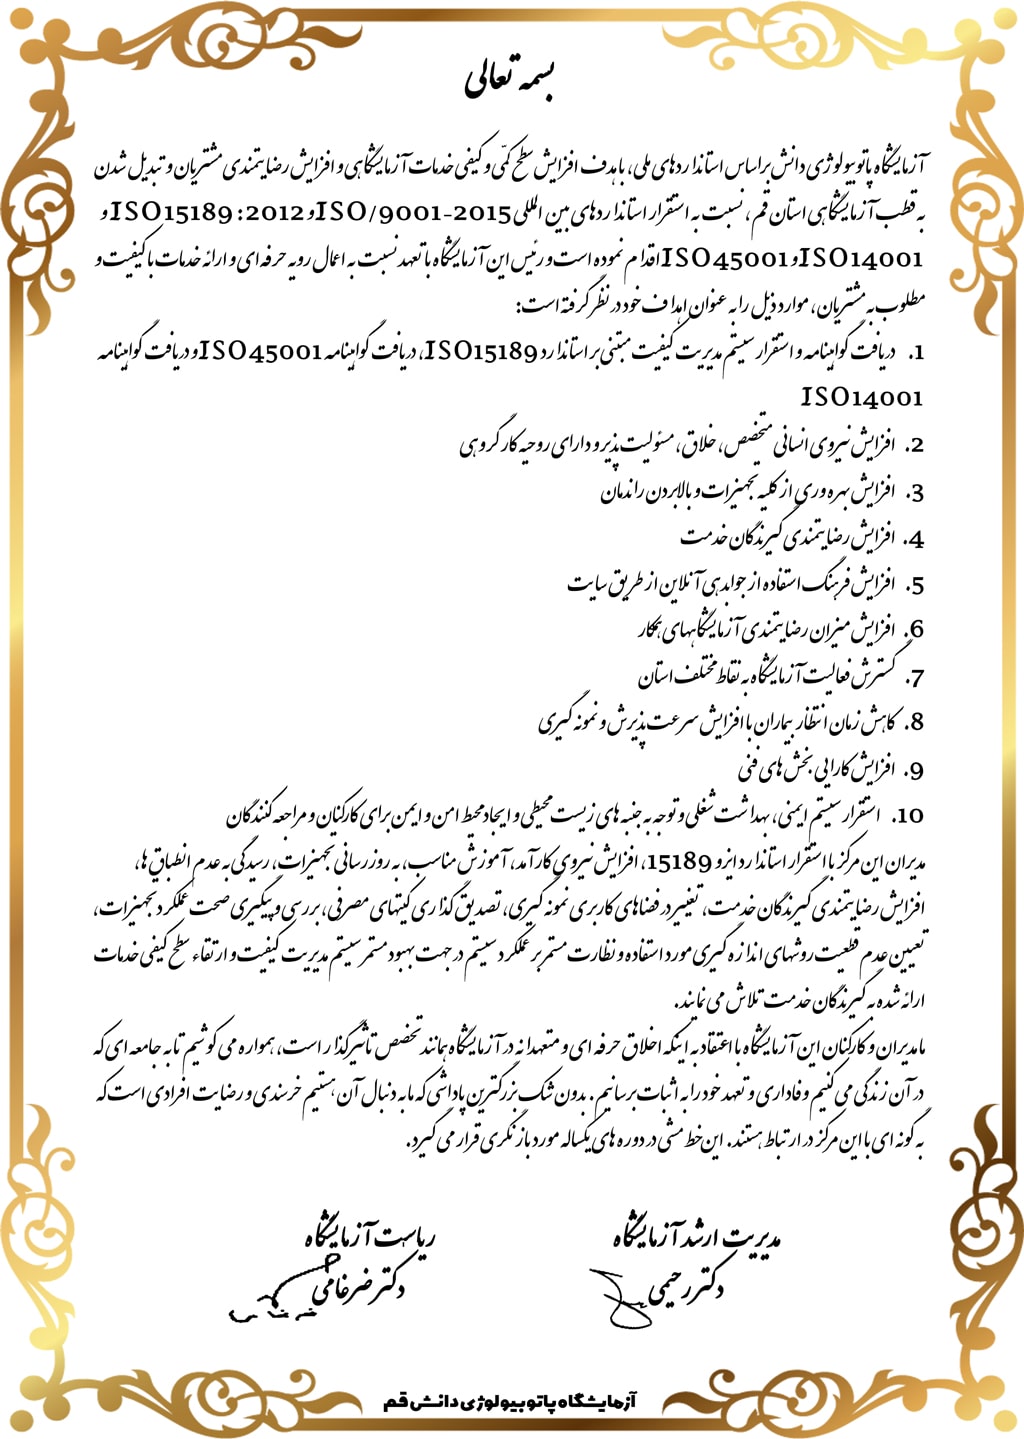 بسمه تعالی
آزمایشگاه پاتوبیولوژی دانش براساس استانداردهای ملی، باهدف افزایش سطح کمّی و کیفی خدمات آزمایشگاهی و افزایش رضایتمندی مشتریان و تبدیل شدن
به قطب آزمایشگاهی استان قم، نسبت به استقرار استانداردهای بین المللی ISO/9001-2015 و ISO15189:2012 و
ISO14001 و ISO45001 اقدام نموده است و رئیس این آزمایشگاه با تعهد نسبت به اعمال رویه حرفه ای و ارائه خدمات با کیفیت و
مطلوب به مشتریان، موارد ذیل را به عنوان اهداف خود در نظر گرفته است:
1. دریافت گواهینامه و استقرار سیستم مدیریت کیفیت مبتنی بر استاندارد ISO15189، دریافت گواهینامه ISO45001 و دریافت گواهینامه
ISO14001
2. افزایش نیروی انسانی متخصص، خلاق، مسئولیت پذیر و دارای روحیه کار گروهی
3. افزایش بهره وری از کلیه تجهیزات و بالابردن راندمان
4. افزایش رضایتمندی گیرندگان خدمت
5. افزایش فرهنگ استفاده از جوابدهی آنلاین از طریق سایت
6. افزایش میزان رضایتمندی آزمایشگاههای همکار
7. گسترش فعالیت آزمایشگاه به نقاط مختلف استان
8. کاهش زمان انتظار بیماران با افزایش سرعت پذیرش و نمونه گیری
9. افزایش کارایی بخش های فنی
10. استقرار سیستم ایمنی، بهداشت شغلی و توجه به جنبه های زیست محیطی و ایجاد محیط امن و ایمن برای کارکنان و مراجعه کنندگان
مدیران این مرکز با استقرار استاندارد ایزو 15189، افزایش نیروی کارآمد، آموزش مناسب، به روزرسانی تجهیزات، رسیدگی به عدم انطباق ها،
افزایش رضایتمندی گیرندگان خدمت، تغییر در فضاهای کاربری نمونه گیری، تصدیق گذاری کیتهای مصرفی، بررسی و پیگیری صحت عملکرد تجهیزات،
تعیین عدم قطعیت روشهای اندازه گیری مورد استفاده و نظارت مستمر بر عملکرد سیستم در جهت بهبود مستمر سیستم مدیریت کیفیت و ارتقاء سطح کیفی خدمات
ارائه شده به گیرندگان خدمت تلاش می نمایند.
ما مدیران و کارکنان این آزمایشگاه با اعتقاد به اینکه اخلاق حرفه ای و متعهدانه در آزمایشگاه همانند تخصص تأثیرگذار است، همواره می کوشیم تا به جامعه ای که
در آن زندگی می کنیم وفاداری و تعهد خود را به اثبات برسانیم. بدون شک بزرگترین پاداشی که ما به دنبال آن هستیم خرسندی و رضایت افرادی است که
به گونه ای با این مرکز در ارتباط هستند. این خط مشی در دوره های یکساله مورد بازنگری قرار می گیرد.
مدیریت ارشد آزمایشگاه
ریاست آزمایشگاه
دکتر رحیمی
دکتر ضرغامی
آزمایشگاه پاتوبیولوژی دانش قم